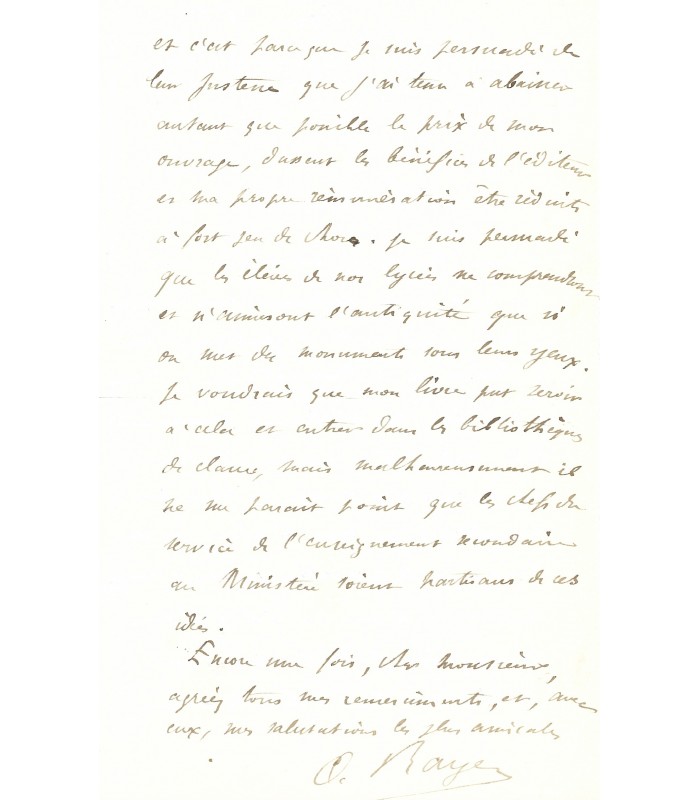 et c'est parceque je suis persuadé de
leur justesse que j'ai tenu à abaisser
autant que possible le prix de mon
ouvrage, dussent les bénéfices de l'éditeur
et ma propre rémunération être réduits
à fort peu de chose. Je suis persuadé
que les élèves de nos lycées ne comprendront
et n'aimeront l'antiquité que si
on met des monuments sous leurs yeux.
Je voudrais que mon livre put servir
à cela et entrer dans les bibliothèques
de classe, mais malheureusement il
ne me parait point que les chefs du
service de l'enseignement secondaire
au Ministère soient partisans de ces
idées.
Encore une fois, cher monsieur,
agréez tous mes remerciments, et, avec
eux, mes salutations les plus amicales
O. Rayet